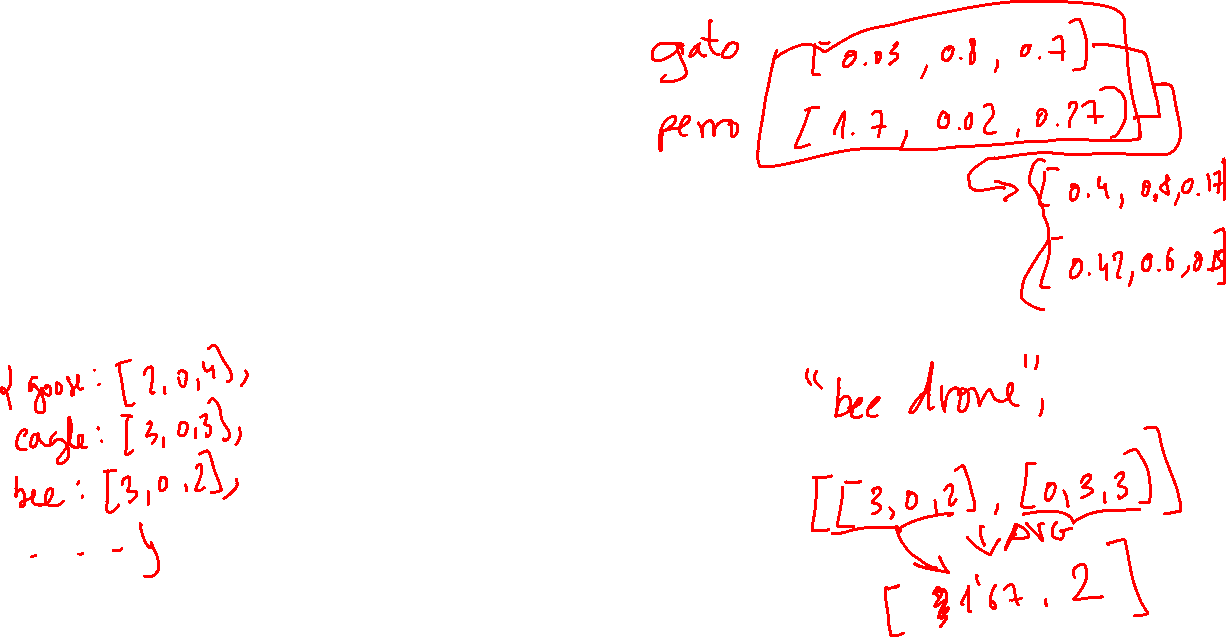 gato [0.05, 0.8, 0.7]
perro [1.7, 0.02, 0.27]
[0.4, 0.8, 0.17]
[0.42, 0.6, 
{ goose: [2, 0, 4],
eagle: [3, 0, 3],
bee: [3, 0, 2],
. . . . }
"bee drone",
[[3, 0, 2], [0, 3, 3]]
AVG
[ 1'67, 2 ]